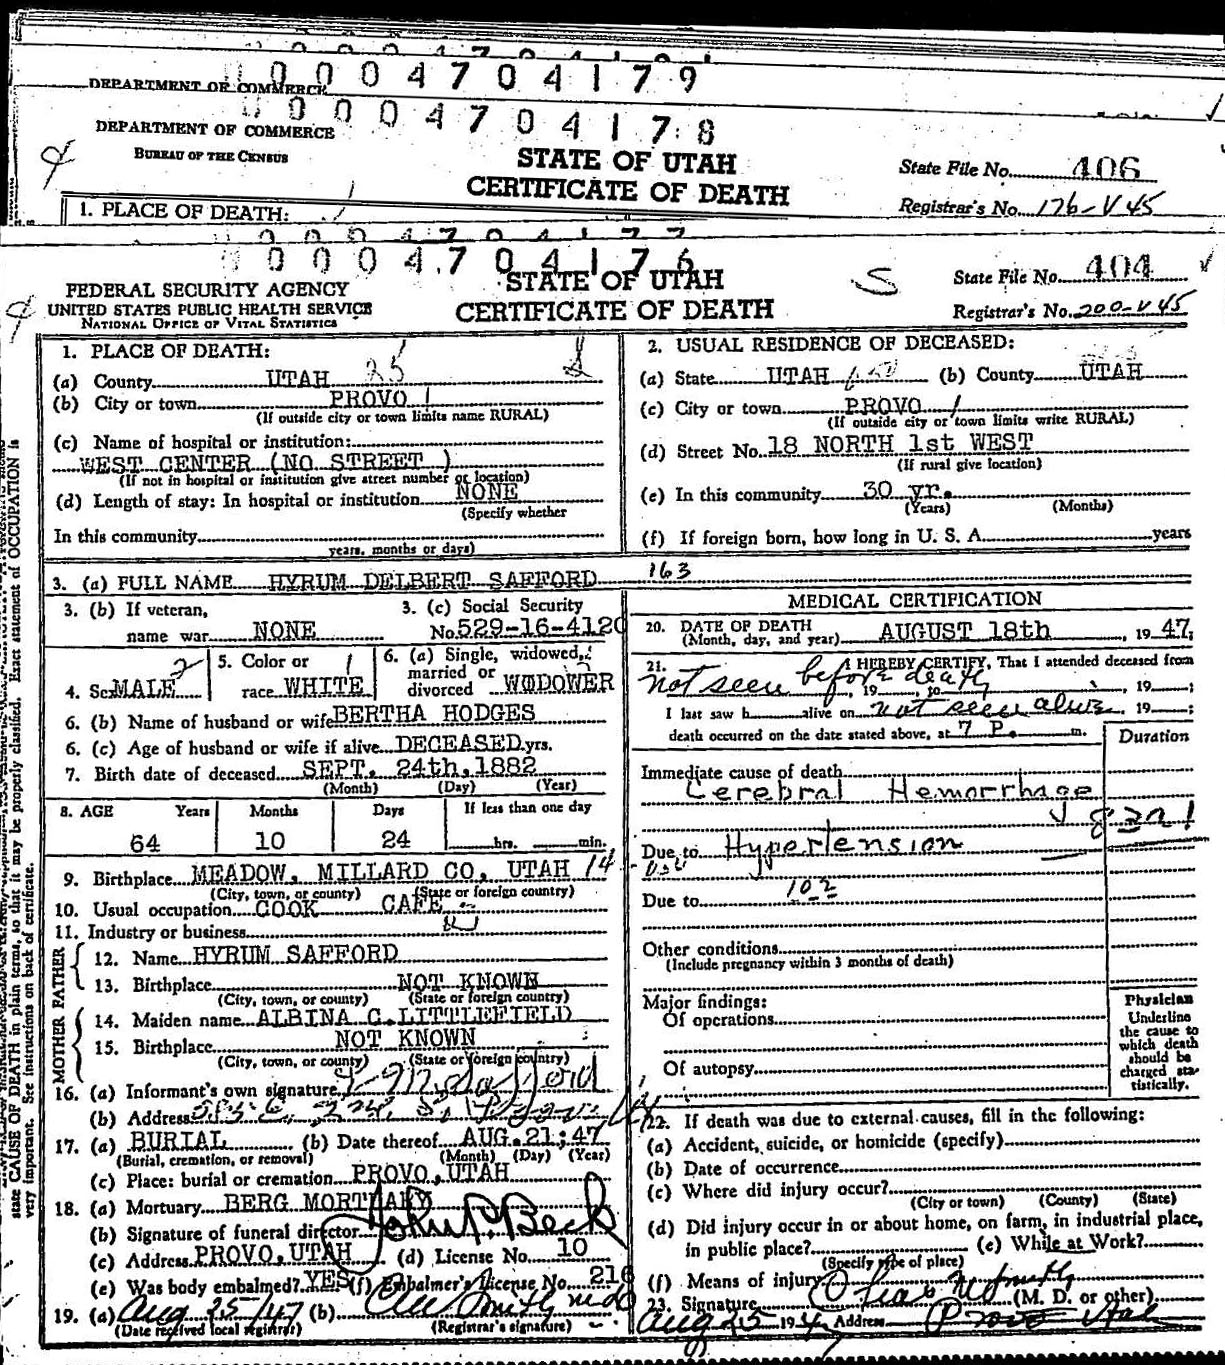 DEPARTMENT OF COMMERCE
0 0 0 4 7 0 4 1 7 9
0 0 0 4 7 0 4 1 7 8
DEPARTMENT OF COMMERCE
BUREAU OF THE CENSUS
STATE OF UTAH
CERTIFICATE OF DEATH
State File No. 406
Registrar's No. 176-V 45
1. PLACE OF DEATH:
0 0 0 4 7 0 4 1 7 7
0 0 0 4 7 0 4 1 7 6
FEDERAL SECURITY AGENCY
UNITED STATES PUBLIC HEALTH SERVICE
NATIONAL OFFICE OF VITAL STATISTICS
STATE OF UTAH
CERTIFICATE OF DEATH
S
State File No. 404
Registrar's No. 200-V 45
1. PLACE OF DEATH:
(a) County UTAH 25
(b) City or town PROVO 1
(If outside city or town limits name RURAL)
(c) Name of hospital or institution:
WEST CENTER (NO STREET )
(If not in hospital or institution give street number or location)
(d) Length of stay: In hospital or institution NONE
(Specify whether
In this community
years, months or days)
2. USUAL RESIDENCE OF DECEASED:
(a) State UTAH (b) County UTAH
(c) City or town PROVO 1
(If outside city or town limits write RURAL)
(d) Street No. 18 NORTH 1st WEST
(If rural give location)
(e) In this community 30 yr.
(Years) (Months)
(f) If foreign born, how long in U. S. A. years
3. (a) FULL NAME HYRUM DELBERT SAFFORD 163
3. (b) If veteran,
name war NONE
3. (c) Social Security
No. 529-16-4120
4. Sex MALE 2
5. Color or
race WHITE 1
6. (a) Single, widowed,
married or
divorced WIDOWER
6. (b) Name of husband or wife BERTHA HODGES
6. (c) Age of husband or wife if alive DECEASED yrs.
7. Birth date of deceased SEPT. 24th, 1882
(Month) (Day) (Year)
8. AGE Years Months Days If less than one day
64 10 24 hrs. min.
9. Birthplace MEADOW, MILLARD CO, UTAH 14
(City, town, or county) (State or foreign country)
10. Usual occupation COOK CAFE
11. Industry or business
FATHER
12. Name HYRUM SAFFORD
13. Birthplace NOT KNOWN
(City, town, or county) (State or foreign country)
MOTHER
14. Maiden name ALBINA C. LITTLEFIELD
15. Birthplace NOT KNOWN
(City, town, or county) (State or foreign country)
16. (a) Informant's own signature
(b) Address
17. (a) BURIAL (b) Date thereof AUG. 21; 47
(Burial, cremation, or removal) (Month) (Day) (Year)
(c) Place: burial or cremation PROVO, UTAH
18. (a) Mortuary BERG MORTUARY
(b) Signature of funeral director John P. Beck
(c) Address PROVO, UTAH (d) License No. 10
(e) Was body embalmed? YES (f) Embalmer's License No. 216
19. (a) Aug 25/47 (b)
(Date received local registrar) (Registrar's signature)
MEDICAL CERTIFICATION
20. DATE OF DEATH
(Month, day, and year) AUGUST 18th, 19 47;
21. I HEREBY CERTIFY, That I attended deceased from
not seen before death, 19 , to , 19 ;
I last saw h alive on not seen alive, 19 ;
death occurred on the date stated above, at 7 P. m.
Duration
Immediate cause of death
Cerebral Hemorrhage
83a1
Due to Hypertension
Due to 102
Other conditions
(Include pregnancy within 3 months of death)
Major findings:
Of operations
Of autopsy
Physician
Underline
the cause to
which death
should be
charged sta-
tistically.
22. If death was due to external causes, fill in the following:
(a) Accident, suicide, or homicide (specify)
(b) Date of occurrence
(c) Where did injury occur?
(City or town) (County) (State)
(d) Did injury occur in or about home, on farm, in industrial place,
in public place? (e) While at Work?
(Specify type of place)
(f) Means of injury
23. Signature (M. D. or other)
Aug 25 1947 Address Provo Utah
state CAUSE OF DEATH in plain terms, so that it may be properly classified. Exact statement of OCCUPATION is
very important. See instructions on back of certificate.